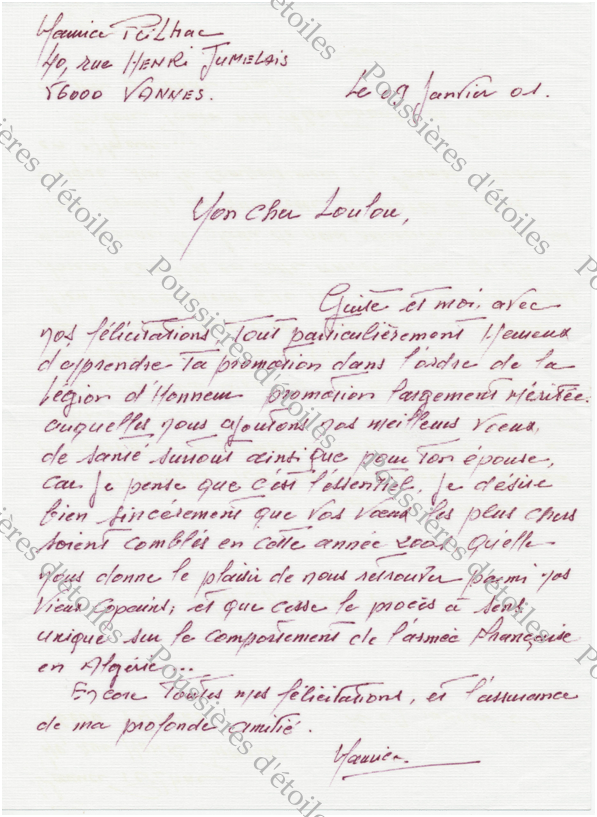 Maurice
40, rue HENRI JUMELAIS
56000 VANNES.
Le 09 Janvier 01.
Mon cher Loulou,
Guite et moi, avec
nos félicitations tout particulièrement heureux
d'apprendre ta promotion dans l'ordre de la
Légion d'Honneur promotion largement méritée.
auquelles nous ajoutons nos meilleurs voeux,
de santé surtout ainsi que pour ton épouse,
car je pense que c'est l'essentiel, je désire
bien sincèrement que vos voeux les plus chers
soient comblés en cette année 2001 qu'elle
nous donne le plaisir de nous retrouver parmi nos
vieux copains; et que cesse le procès à sens
unique sur le comportement de l'armée française
en Algérie...
Encore toutes mes félicitations, et l'assurance
de ma profonde amitié.
Maurice
Poussières d'étoiles
Poussières d'étoiles
Poussières d'étoiles
Poussières d'étoiles
Poussières d'étoiles
Poussières d'étoiles
Poussières d'étoiles